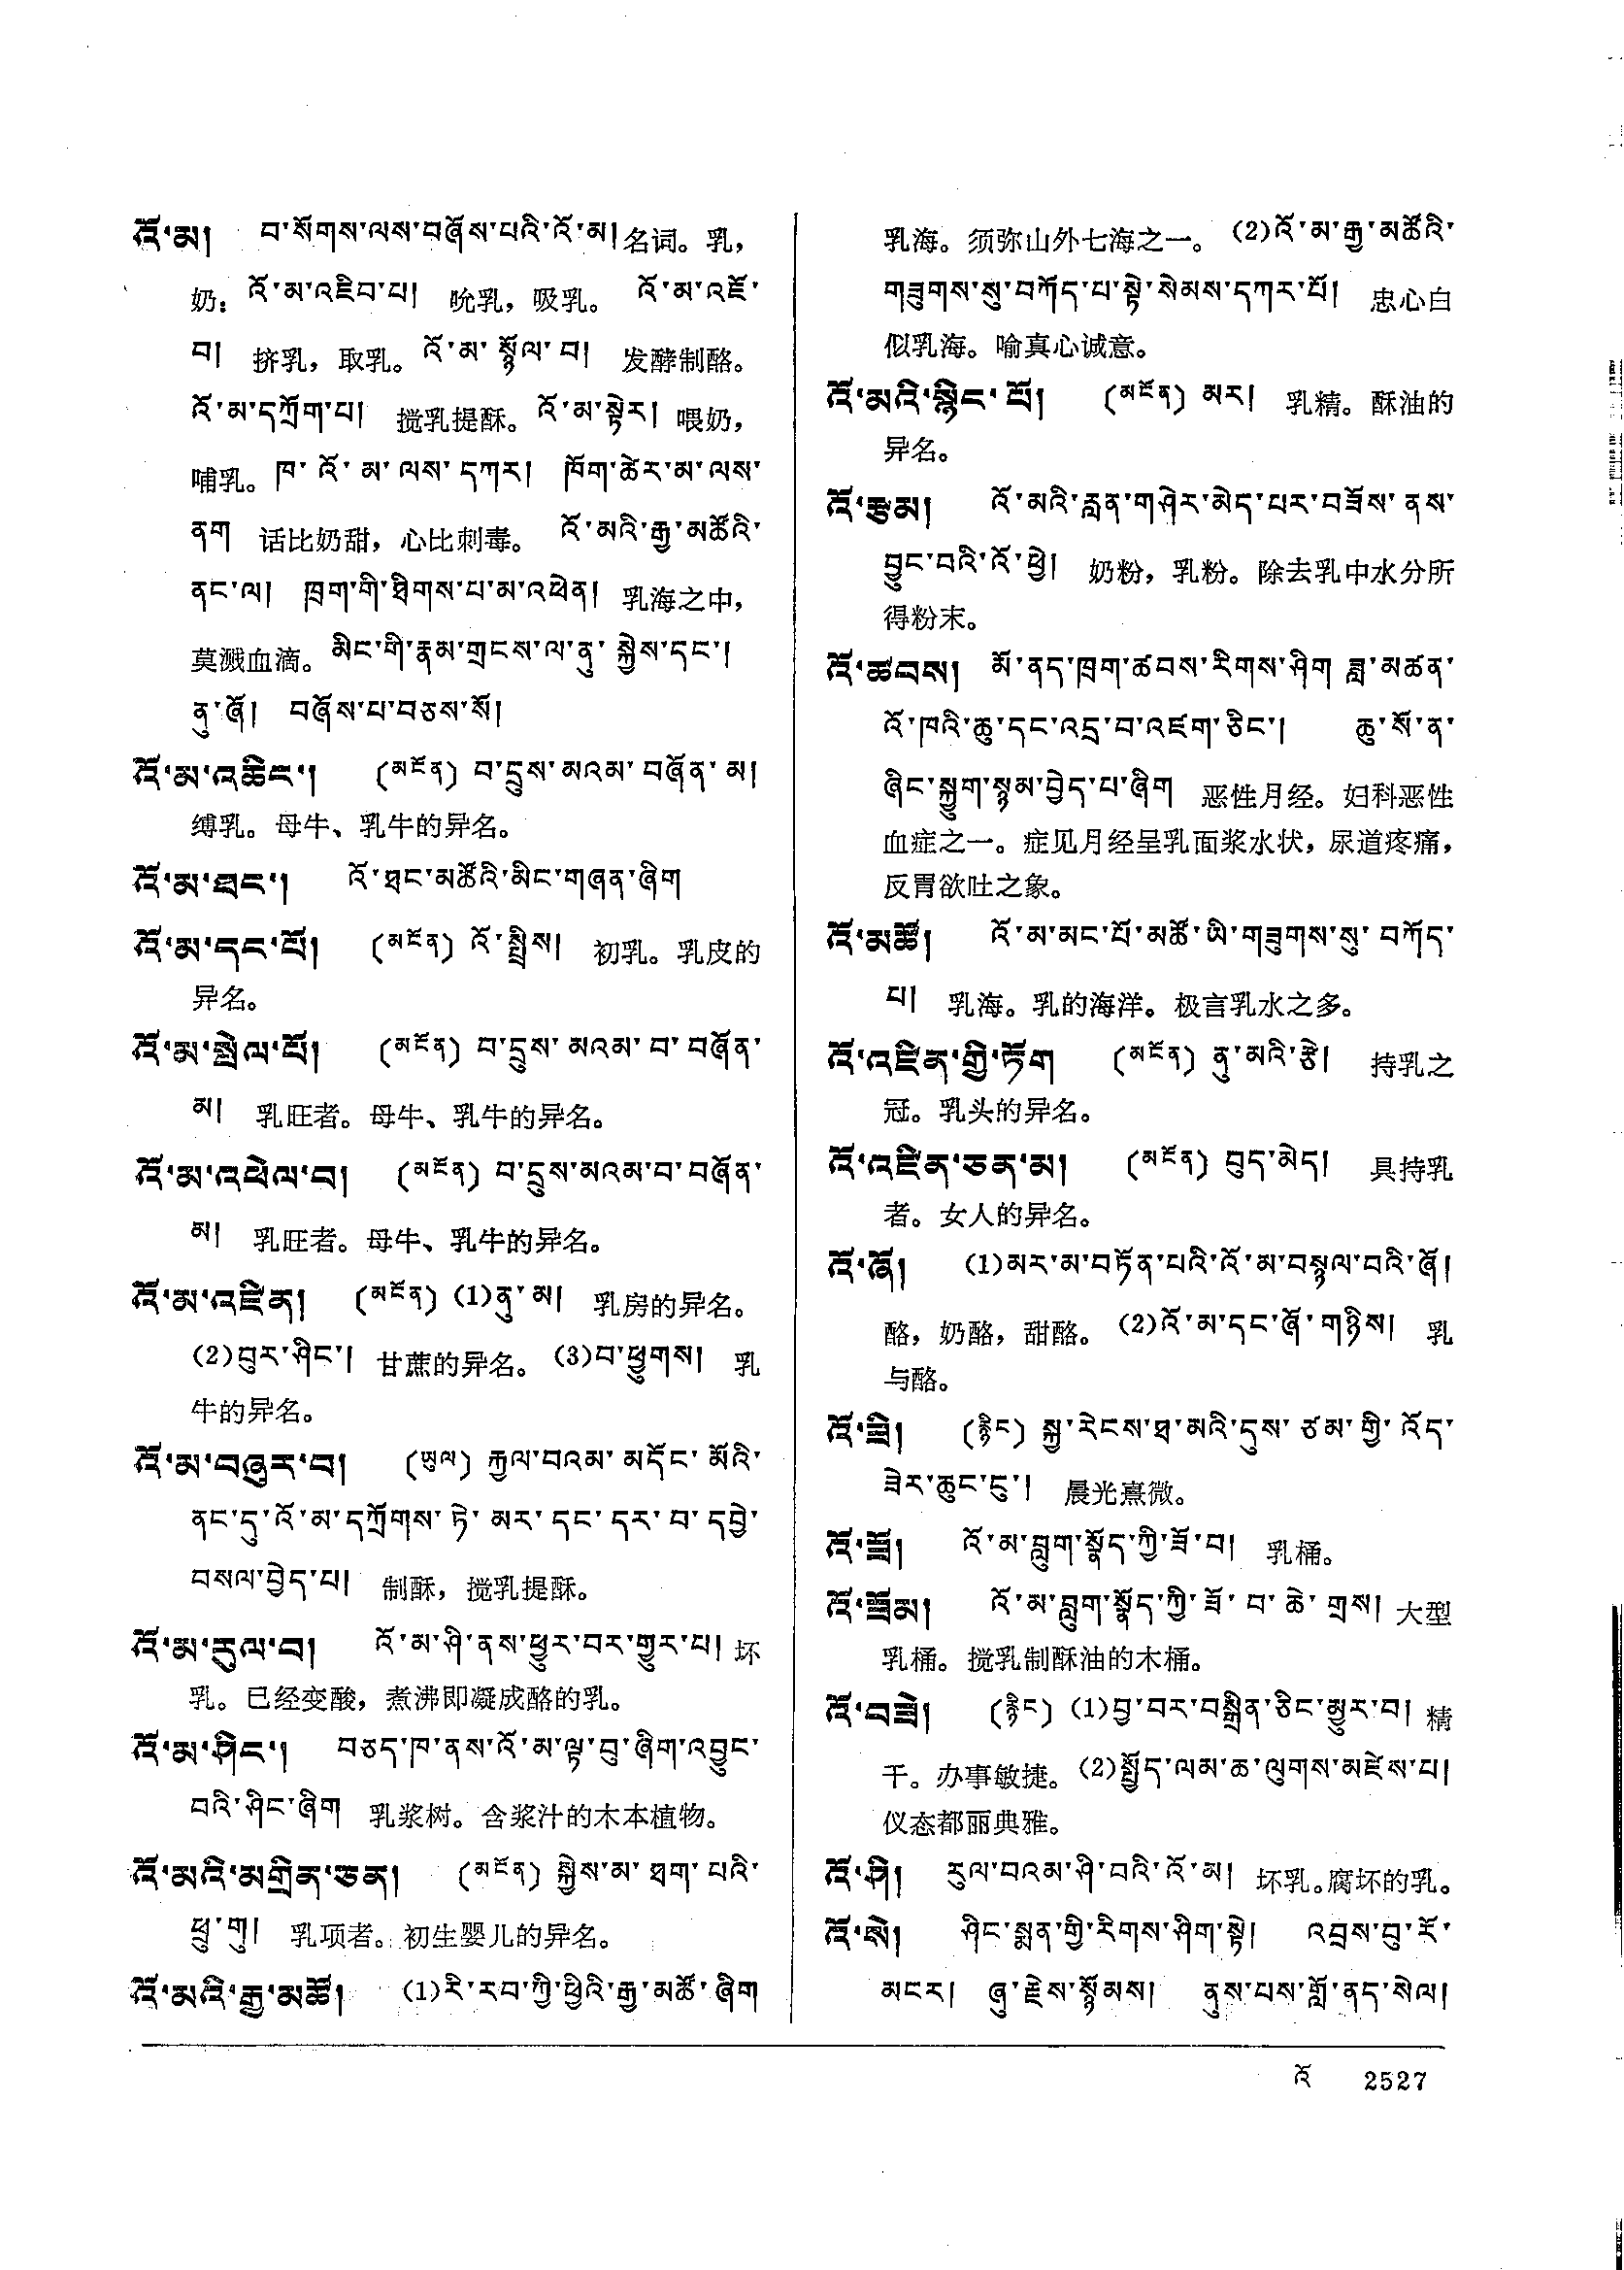 འོ་མ།   བ་སོགས་ལས་བཞོས་པའི་འོ་མ།名词。乳，
奶：འོ་མ་འཇིབ་པ། 吮乳，吸乳。 འོ་མ་འཇོ་
བ། 挤乳，取乳。འོ་མ་སྙོལ་བ། 发酵制酪。
འོ་མ་དཀྲོག་པ། 搅乳提酥。འོ་མ་སྟེར། 喂奶，
哺乳。ཁ་འོ་མ་ལས་དཀར། ཁོག་ཚེར་མ་ལས་
ནག 话比奶甜，心比刺毒。 འོ་མའི་རྒྱ་མཚོའི་
ནང་ལ། ཁྲག་གི་ཐིགས་པ་མ་འཕེན། 乳海之中，
莫溅血滴。མིང་གི་རྣམ་གྲངས་ལ་ནུ་སྐྱེས་དང་།
ནུ་ཞོ། བཞོས་པ་བཅས་སོ།
འོ་མ་འཆིང་།   (མངོན) བ་དྲུས་མའམ་བཞོན་མ།
缚乳。母牛、乳牛的异名。
འོ་མ་ཐང་།   འོ་ཐང་མཚོའི་མིང་གཞན་ཞིག
འོ་མ་དང་པོ།   (མངོན) འོ་སྤྲིས། 初乳。乳皮的
异名。
འོ་མ་སྤྲེལ་པོ།   (མངོན) བ་དྲུས་མའམ་བ་བཞོན་
མ། 乳旺者。母牛、乳牛的异名。
འོ་མ་འཕེལ་བ།   (མངོན) བ་དྲུས་མའམ་བ་བཞོན་
མ། 乳旺者。母牛、乳牛的异名。
འོ་མ་འཛིན།   (མངོན) (1)ནུ་མ། 乳房的异名。
(2)བུར་ཤིང་། 甘蔗的异名。(3)བ་ཕྱུགས། 乳
牛的异名。
འོ་མ་བཞུར་བ།   (ཡུལ) རྐྱལ་བའམ་མདོང་མོའི་
ནང་དུ་འོ་མ་དཀྲོགས་ཏེ་མར་དང་དར་བ་དབྱེ་
བསལ་བྱེད་པ། 制酥，搅乳提酥。
འོ་མ་རུལ་བ།   འོ་མ་ཤི་ནས་ཕྱུར་བར་གྱུར་པ། 坏
乳。已经变酸，煮沸即凝成酪的乳。
འོ་མ་ཤིང་།   བཅད་ཁ་ནས་འོ་མ་ལྟ་བུ་ཞིག་འབྱུང་
བའི་ཤིང་ཞིག 乳浆树。含浆汁的木本植物。
འོ་མའི་མགྲིན་ཅན།   (མངོན) སྐྱེས་མ་ཐག་པའི་
ཕྲུ་གུ། 乳项者。初生婴儿的异名。
འོ་མའི་རྒྱ་མཚོ།   (1)རི་རབ་ཀྱི་ཕྱིའི་རྒྱ་མཚོ་ཞིག
乳海。须弥山外七海之一。 (2)འོ་མ་རྒྱ་མཚོའི་
གཟུགས་སུ་བཀོད་པ་སྟེ་སེམས་དཀར་པོ། 忠心白
似乳海。喻真心诚意。
འོ་མའི་སྙིང་པོ།   (མངོན) མར། 乳精。酥油的
异名。
འོ་རྩམ།   འོ་མའི་རླན་གཤེར་མེད་པར་བཟོས་ནས་
བྱུང་བའི་འོ་ཕྱེ། 奶粉，乳粉。除去乳中水分所
得粉末。
འོ་ཚབས།   མོ་ནད་ཁྲག་ཚབས་རིགས་ཤིག ཟླ་མཚན་
འོ་ཁའི་ཆུ་དང་འདྲ་བ་འཛག་ཅིང་། ཆུ་སོ་ན་
ཞིང་སྐྱུག་སྙམ་བྱེད་པ་ཞིག 恶性月经。妇科恶性
血症之一。症见月经呈乳面浆水状，尿道疼痛，
反胃欲吐之象。
འོ་མཚོ།   འོ་མ་མང་པོ་མཚོ་ཡི་གཟུགས་སུ་བཀོད་
པ། 乳海。乳的海洋。极言乳水之多。
འོ་འཛིན་གྱི་ཏོག   (མངོན) ནུ་མའི་རྩེ། 持乳之
冠。乳头的异名。
འོ་འཛིན་ཅན་མ།   (མངོན) བུད་མེད། 具持乳
者。女人的异名。
འོ་ཞོ།   (1)མར་མ་བཏོན་པའི་འོ་མ་བསྙལ་བའི་ཞོ།
酪，奶酪，甜酪。(2)འོ་མ་དང་ཞོ་གཉིས། 乳
与酪。
འོ་ཟི།   (རྙིང) སྐྱ་རེངས་ཐ་མའི་དུས་ཙམ་གྱི་འོད་
ཟེར་ཆུང་ངུ་། 晨光熹微。
འོ་ཟོ།   འོ་མ་བླུག་སྣོད་ཀྱི་ཟོ་བ། 乳桶。
འོ་ཟོམ།   འོ་མ་བླུག་སྣོད་ཀྱི་ཟོ་བ་ཆེ་གྲས། 大型
乳桶。搅乳制酥油的木桶。
འོ་བཟེ།   (རྙིང) (1)བྱ་བར་བསྒྲིན་ཅིང་མྱུར་བ། 精
干。办事敏捷。(2)སྤྱོད་ལམ་ཆ་ལུགས་མཛེས་པ།
仪态都丽典雅。
འོ་ཤི།   རུལ་བའམ་ཤི་བའི་འོ་མ། 坏乳。腐坏的乳。
འོ་སེ།   ཤིང་སྨན་གྱི་རིགས་ཤིག་སྟེ། འབྲས་བུ་རོ་
མངར། ཞུ་རྗེས་སྙོམས། ནུས་པས་གློ་ནད་སེལ།
འོ   2527